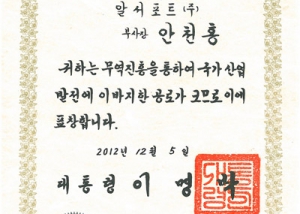 알서포트 (주)
부사장 안천홍
귀하는 무역진흥을 통하여 국가 산업
발전에 이바지한 공로가 크므로 이에
표창합니다.
2012년 12월 5일
대통령 이 명 박